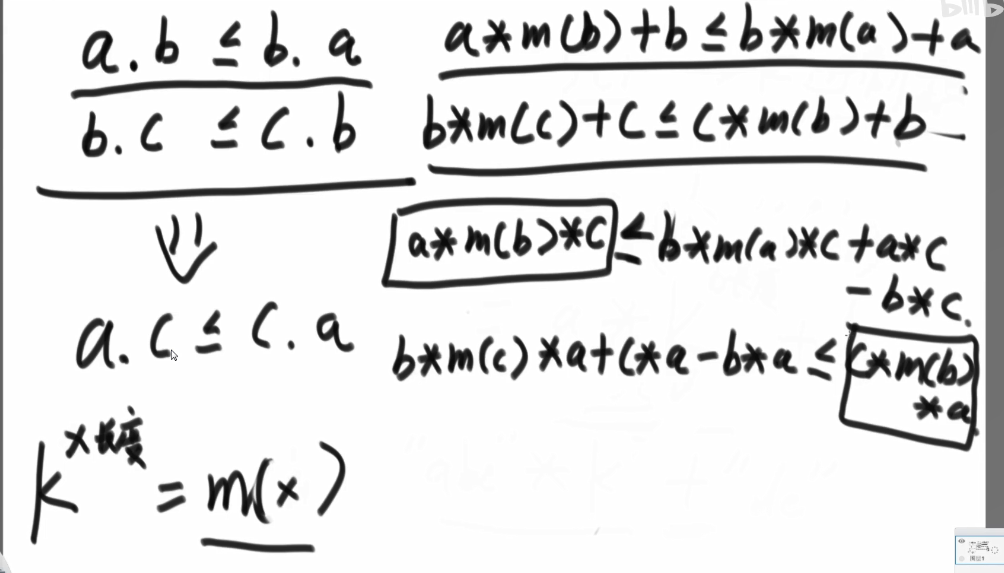 a.b ≤ b.a
b.c ≤ c.b
a.c ≤ c.a
k^x长度 = m(x)
a*m(b)+b ≤ b*m(a)+a
b*m(c)+c ≤ c*m(b)+b
a*m(b)*c ≤ b*m(a)*c+a*c
-b*c.
b*m(c)*a+c*a-b*a ≤ c*m(b)
*a